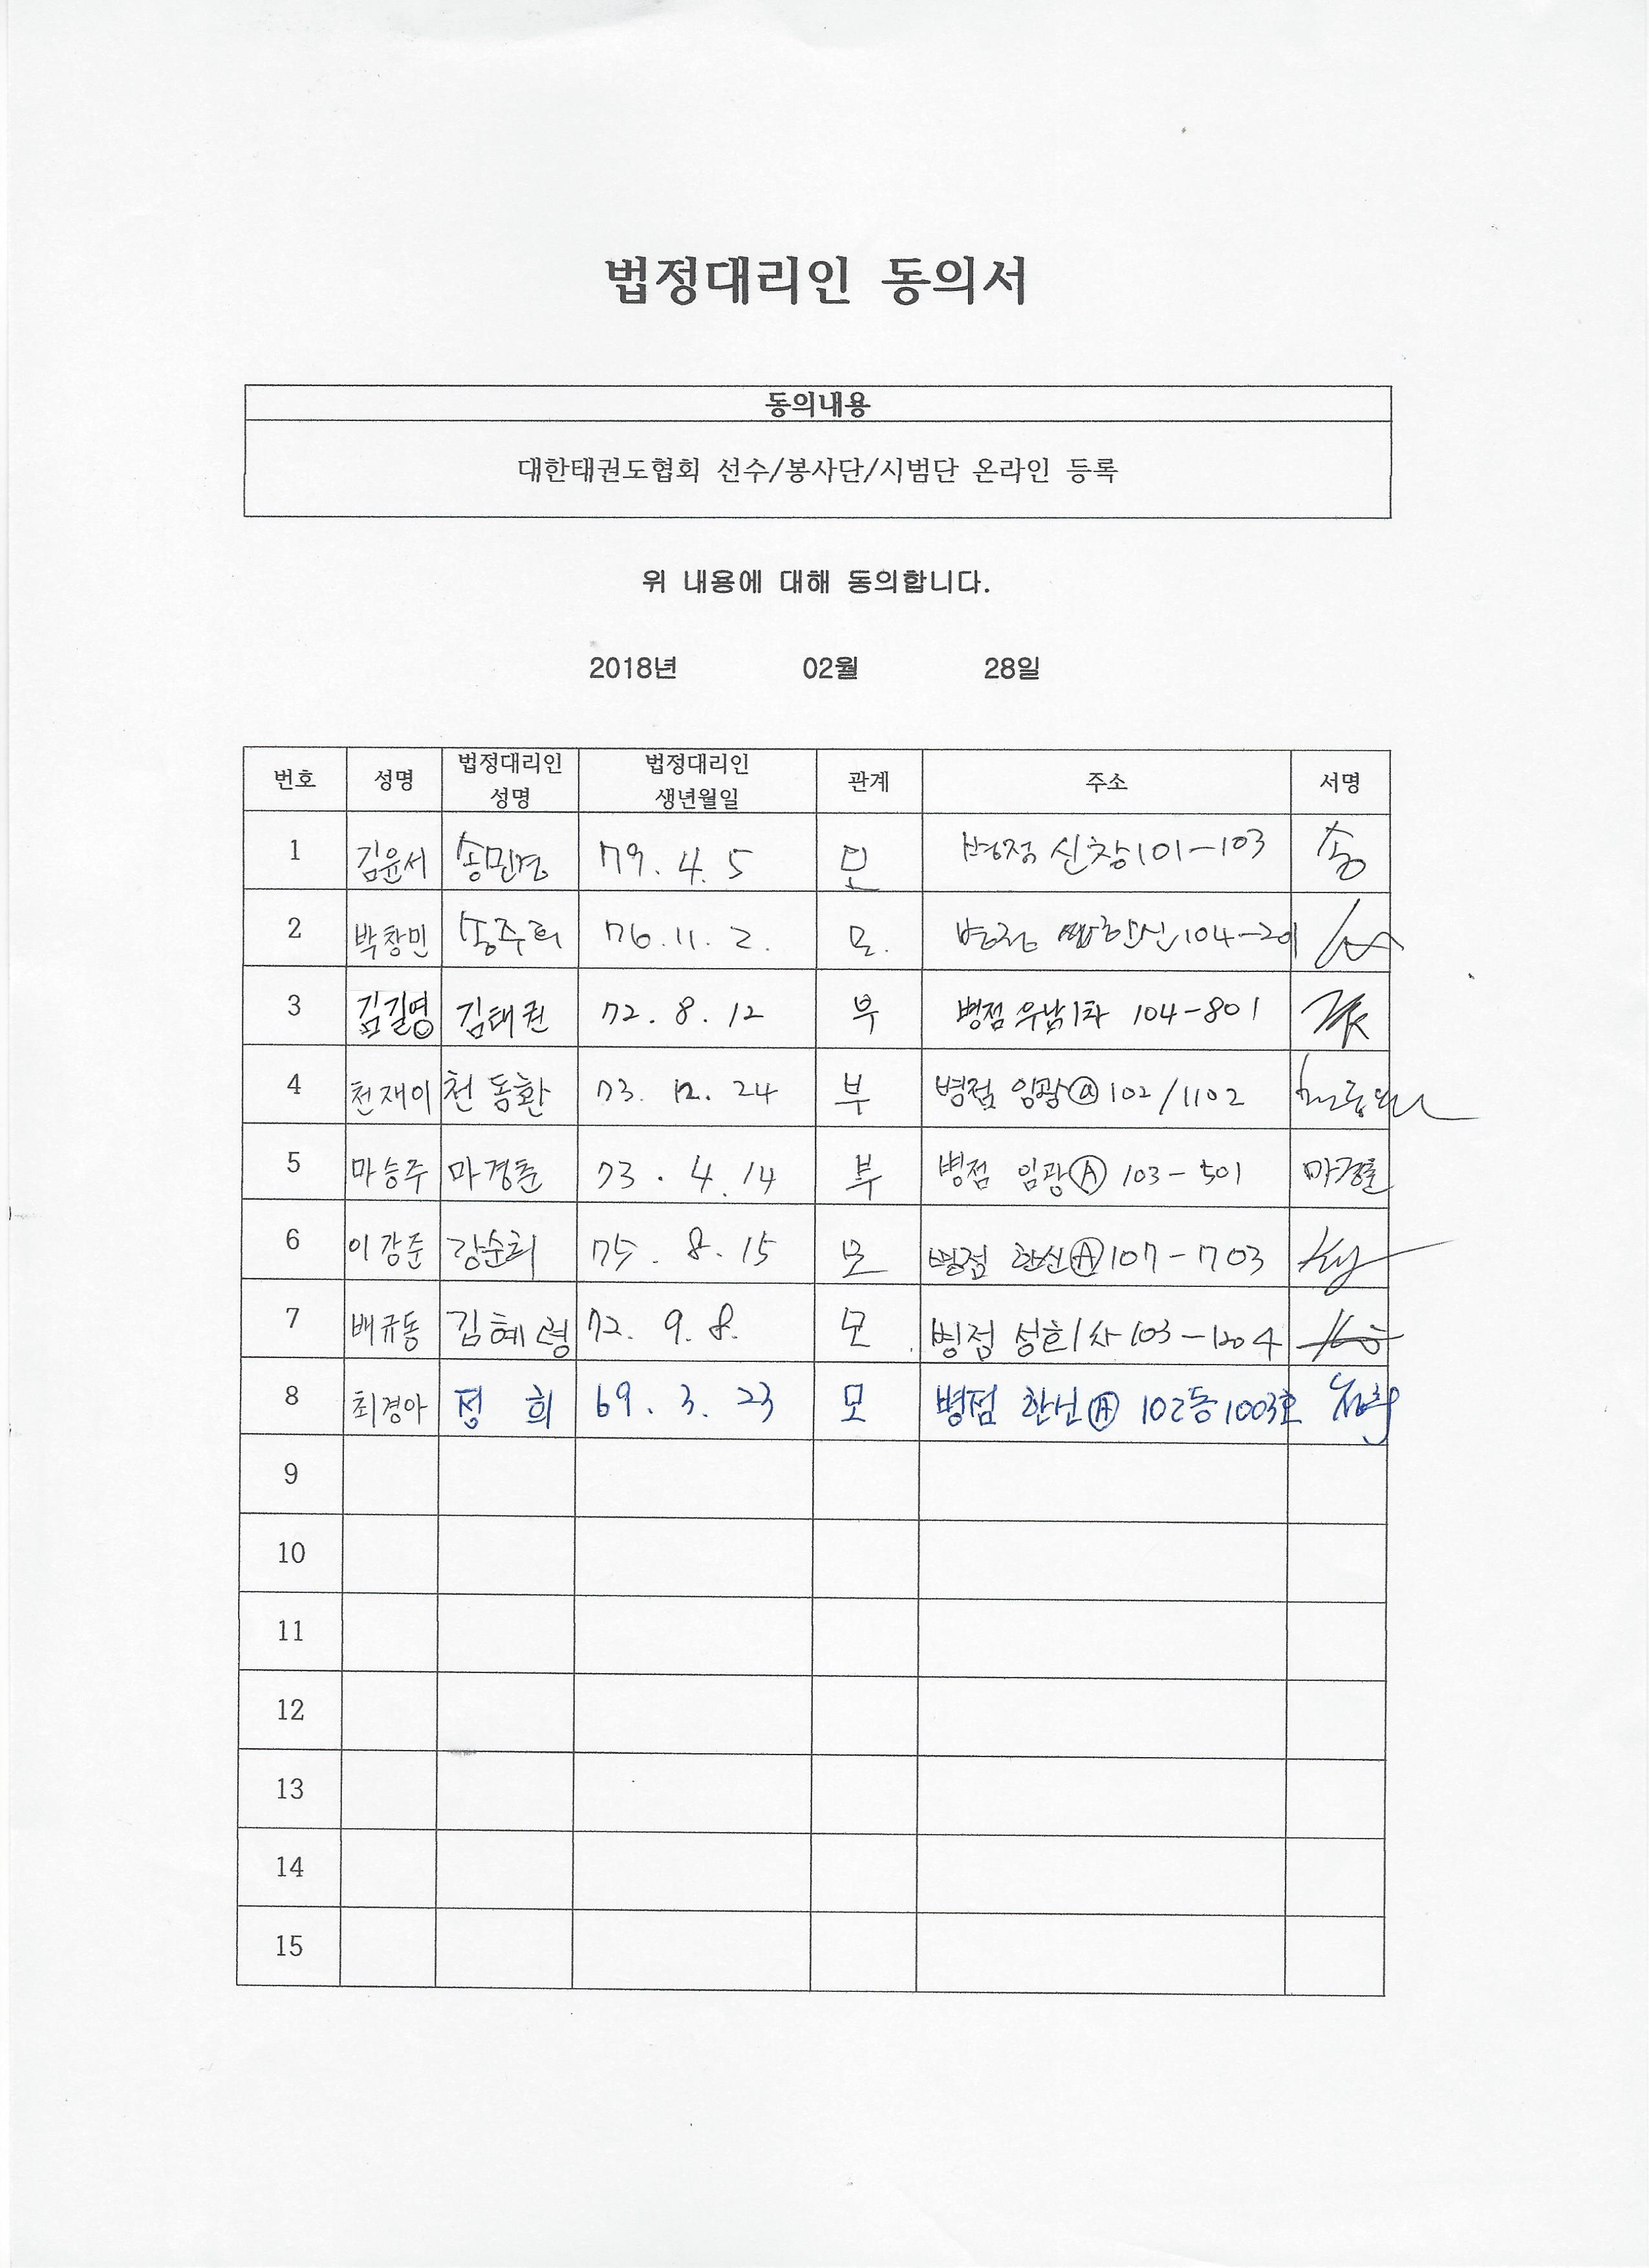 법정대리인 동의서
동의내용
대한태권도협회 선수/봉사단/시범단 온라인 등록
위 내용에 대해 동의합니다.
2018년 02월 28일
번호 성명 법정대리인 성명 법정대리인 생년월일 관계 주소 서명
1 김윤서 송민경 79. 4. 5 모 병점 신창 101-103 송
2 박창민 송주희 76. 11. 2. 모. 병점 한신 104-201
3 김길영 김태권 72. 8. 12 부 병점 우남1차 104-801
4 천재이 천동환 73. 12. 24 부 병점 임광ⓐ 102/1102
5 마승주 마경춘 73. 4. 14 부 병점 임광Ⓐ 103-501 마경춘
6 이강준 강순희 75. 8. 15 모 병점 한신Ⓐ 107-703
7 배규동 김혜령 72. 9. 8. 모 병점 성호1차 103-1204
8 최경아 정 희 69. 3. 23 모 병점 한신Ⓐ 102동 1003호
9
10
11
12
13
14
15